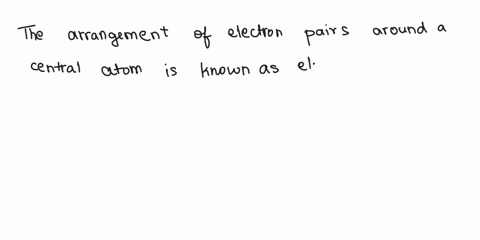 The arrangement of electron pairs around a
central atom is known as el